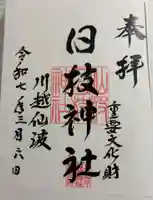 奉拝
重要文化財
日枝神社
川越仙波
令和七年三月六日